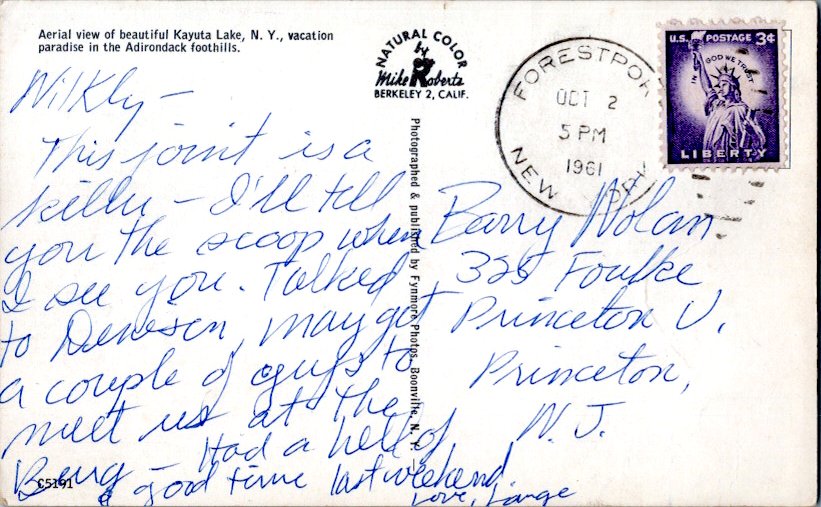 Aerial view of beautiful Kayuta Lake, N. Y., vacation
paradise in the Adirondack foothills.
NATURAL COLOR
by
Mike Roberts
BERKELEY 2, CALIF.
FORESTPOR
OCT 2
5 PM
1961
NEW YORK
U.S. POSTAGE 3¢
IN GOD WE TRUST
LIBERTY
Photographed & published by Fynmore Photos, Boonville, N. Y.
This joint is a
killer – I'll tell
you the scoop when
I see you. Talked
to, may get
a couple of guys to
meet us at the
Berg – Had a hell of
a good time last weekend
Love,
Barry Nolan
325 Foulke
Princeton U.
Princeton,
N. J.
C5191